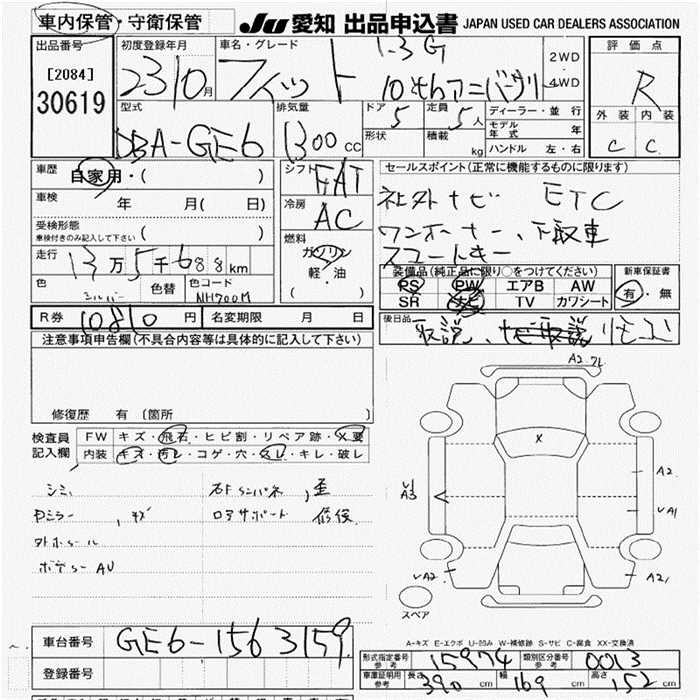 車内保管・守衛保管 JU 愛知 出品申込書 JAPAN USED CAR DEALERS ASSOCIATION
出品番号 [2084] 30619
初度登録年月 23 10月
車名・グレード フィット 1.3G 10thアニバーサリー
2WD・4WD
評価点 R
外装 内装
C C
型式 DBA-GE6
排気量 1300 CC
ドア 5 定員 5人
形状 積載 kg
ディーラー・並行
モデル年式 年
ハンドル 左・右
車歴 自家用・( )
車検 年 月( 日)
受検形態
車検付きのみ記入して下さい ( )
走行 13万5千688km
色 シルバー 色替 色コード NH700M
シフト FAT
冷房 AC
燃料 ガソリン
軽・油
( )
セールスポイント(正常に機能するものに限り)
社外ナビ ETC
ワンオーナー、下取車
スマートキー
装備品(純正品に限り○をつけてください)
PS PW エアB AW
SR ナビ TV カワシート
新車保証書
有・無
R券 10810円 名変期限 月 日
後日品 取説、ナビ取説 リモコン
注意事項申告欄(不具合内容等は具体的に記入して下さい)
修復歴 有 〔箇所 〕
検査員記入欄
FW キズ・飛石・ヒビ割・リペア跡・X要
内装 キズ・汚レ・コゲ・穴・スレ・キレ・破レ
シミ
Rミラー、キズ
外ホイール
ボデーAU
右Fインパネ、歪
ロアサポート 修復
A2 7L
X
U1
A3
A2
UA1
UA2
A21
スペア
A-キズ E-エクボ U-凹み W-補修跡 S-サビ C-腐食 XX-交換済
車台番号 GE6-1563159
登録番号
形式指定番号 参考 15974 類別区分番号 参考 0013
車庫証明用 参考 長さ 390cm 幅 169cm 高さ 152cm